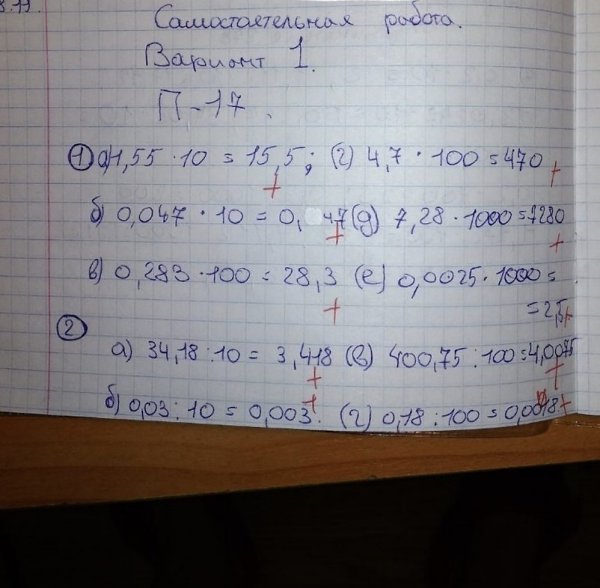 8.11
Самостоятельная работа.
Вариант 1.
П-17.
① а) 1,55 · 10 = 15,5; (г) 4,7 · 100 = 470
б) 0,047 · 10 = 0,47 (д) 7,28 · 1000 = 7280
в) 0,283 · 100 = 28,3 (е) 0,0025 · 1000 =
= 2,5
②
а) 34,18 : 10 = 3,418 (в) 400,75 : 100 = 4,0075
б) 0,03 : 10 = 0,003. (г) 0,18 : 100 = 0,0018